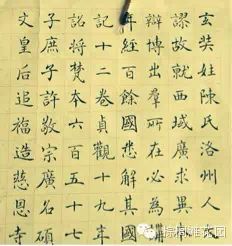 玄奘姓陳氏洛州人
謬故就西域廣求異
辯博出群所在必為
年經百餘國悉解其國
記十二卷貞觀十九年
詔將梵本六百五十七
子庶子許敬宗廣召碩
文皇后追福造慈恩寺